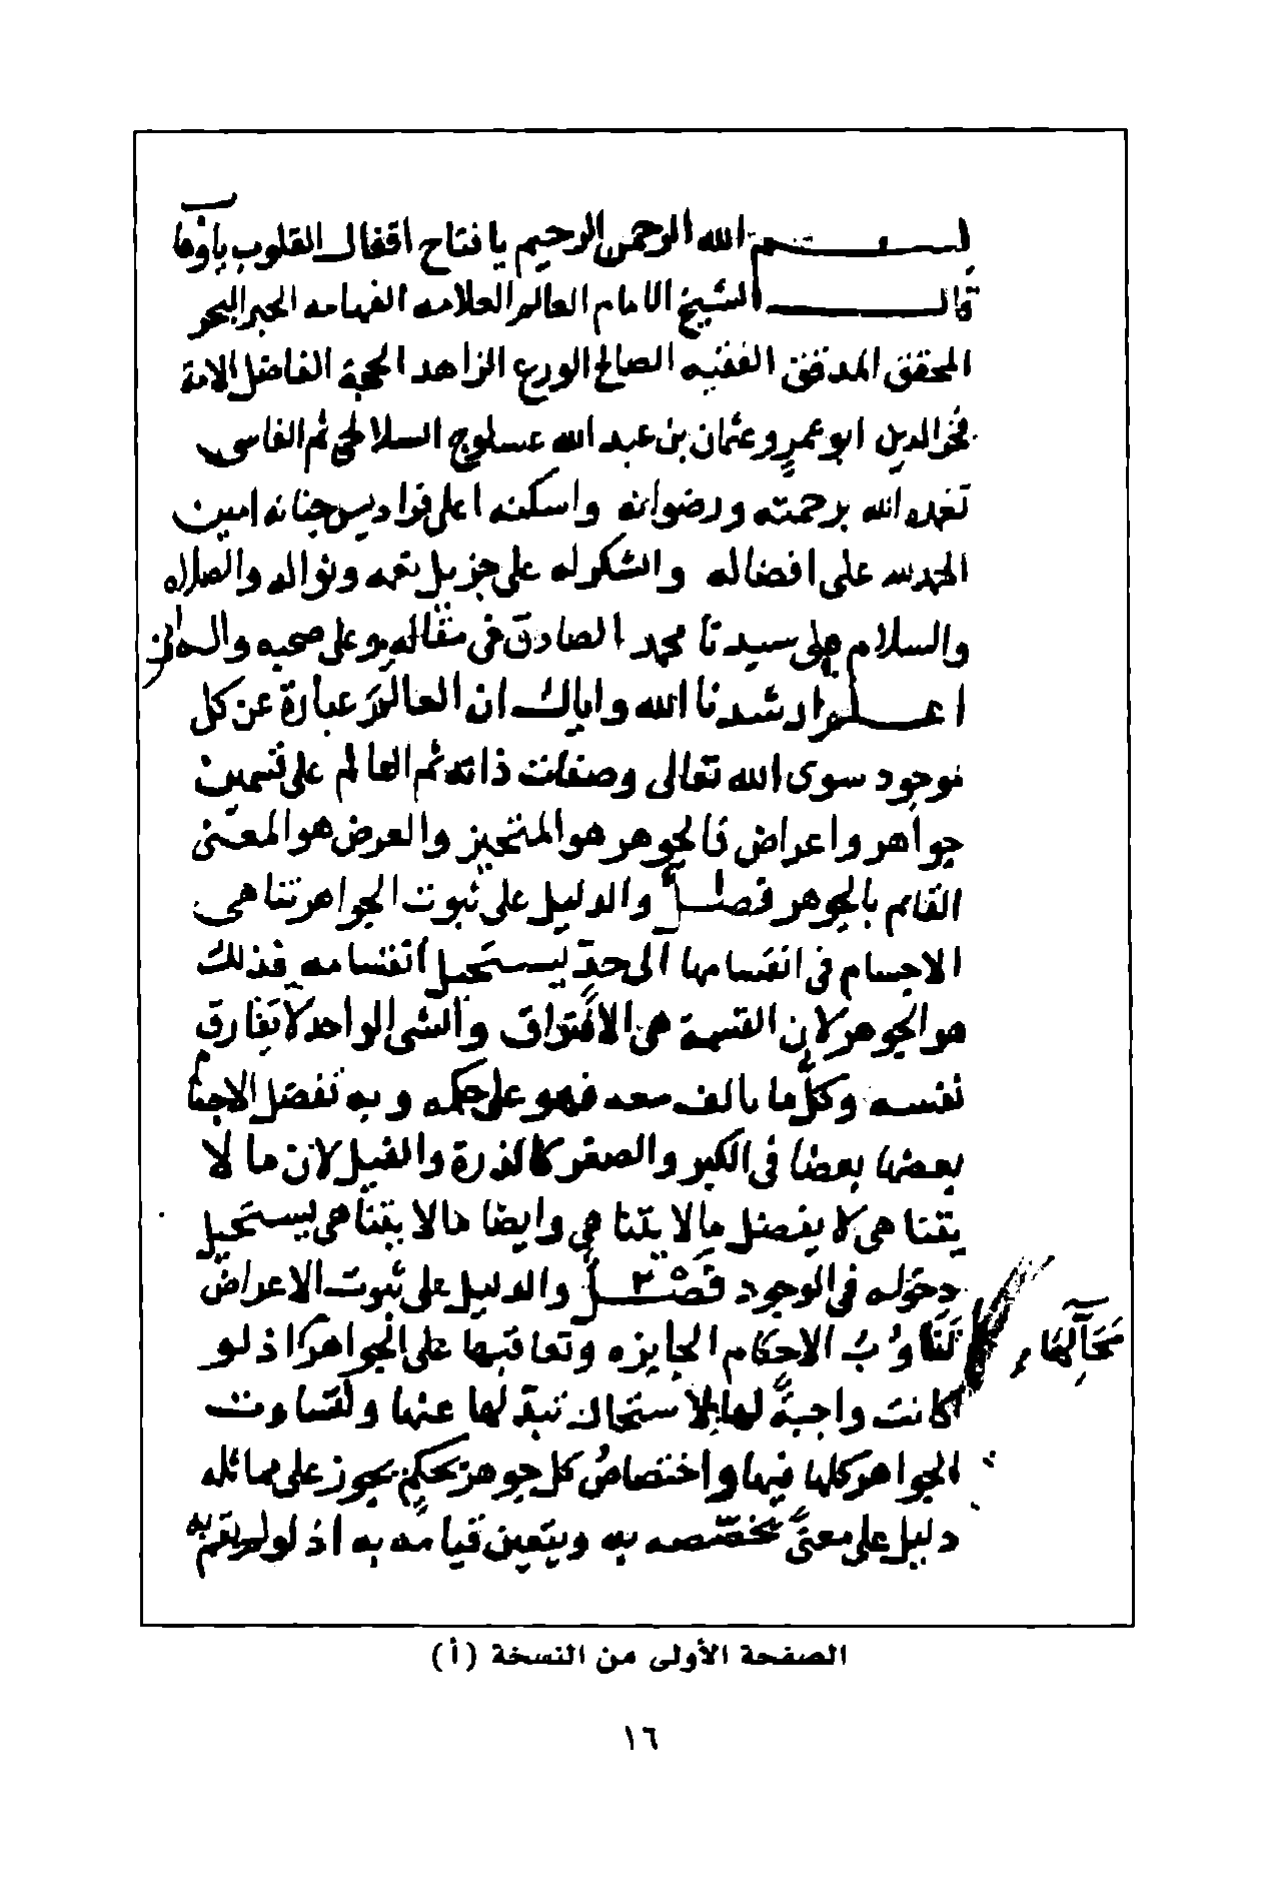 بسم الله الرحمن الرحيم يا فتاح اقفال القلوب
قال الشيخ الامام العالم العلامه الفهامه الحبر البحر
المحقق المدقق الفقيه الصالح الورع الزاهد الحجة الفاضل
فخر الدين ابو عمرو عثمان بن عبد الله عسلوج السلالجي ثم الفاسي
تغمده الله برحمته ورضوانه واسكنه اعلى فراديس جنانه امين
الحمد لله على افضاله والشكر له على جزيل نعمه ونواله والصلاه
والسلام على سيدنا محمد الصادق في مقاله وعلى صحبه واله
اعلم ارشدنا الله واياك ان العالم عبارة عن كل
موجود سوى الله تعالى وصفات ذاته ثم العالم على قسمين
جواهر واعراض فالجوهر هو المتحيز والعرض هو المعنى
القايم بالجوهر فصل والدليل على ثبوت الجواهر تناهي
الاجسام في انقسامها الى حد يستحيل انقسامه فذلك
هو الجوهر لان القسمة هي الافتراق والشي الواحد لا يفارق
نفسه وكل ما بالف معه فهو على حكمه وبه تفضل الاجسا
بعضها بعضا في الكبر والصغر كالذرة والفيل لان ما لا
يتناهى لا يفضل ما لا يتناهي وايضا مالا يتناهى يستحيل
دخوله في الوجود فصل والدليل على ثبوت الاعراض
تناوب الاحكام الجايزه وتعاقبها على الجواهر اذ لو
محآلها
كانت واجبة لها لاستحال تبدلها عنها ولتساوت
الجواهر كلها فيها واختصاص كل جوهر بحكم يجوز على مماثله
دليل على معنى يخصصه به ويتعين قيامه به اذ لو لم يقم به
الصفحة الأولى من النسخة (أ)
١٦